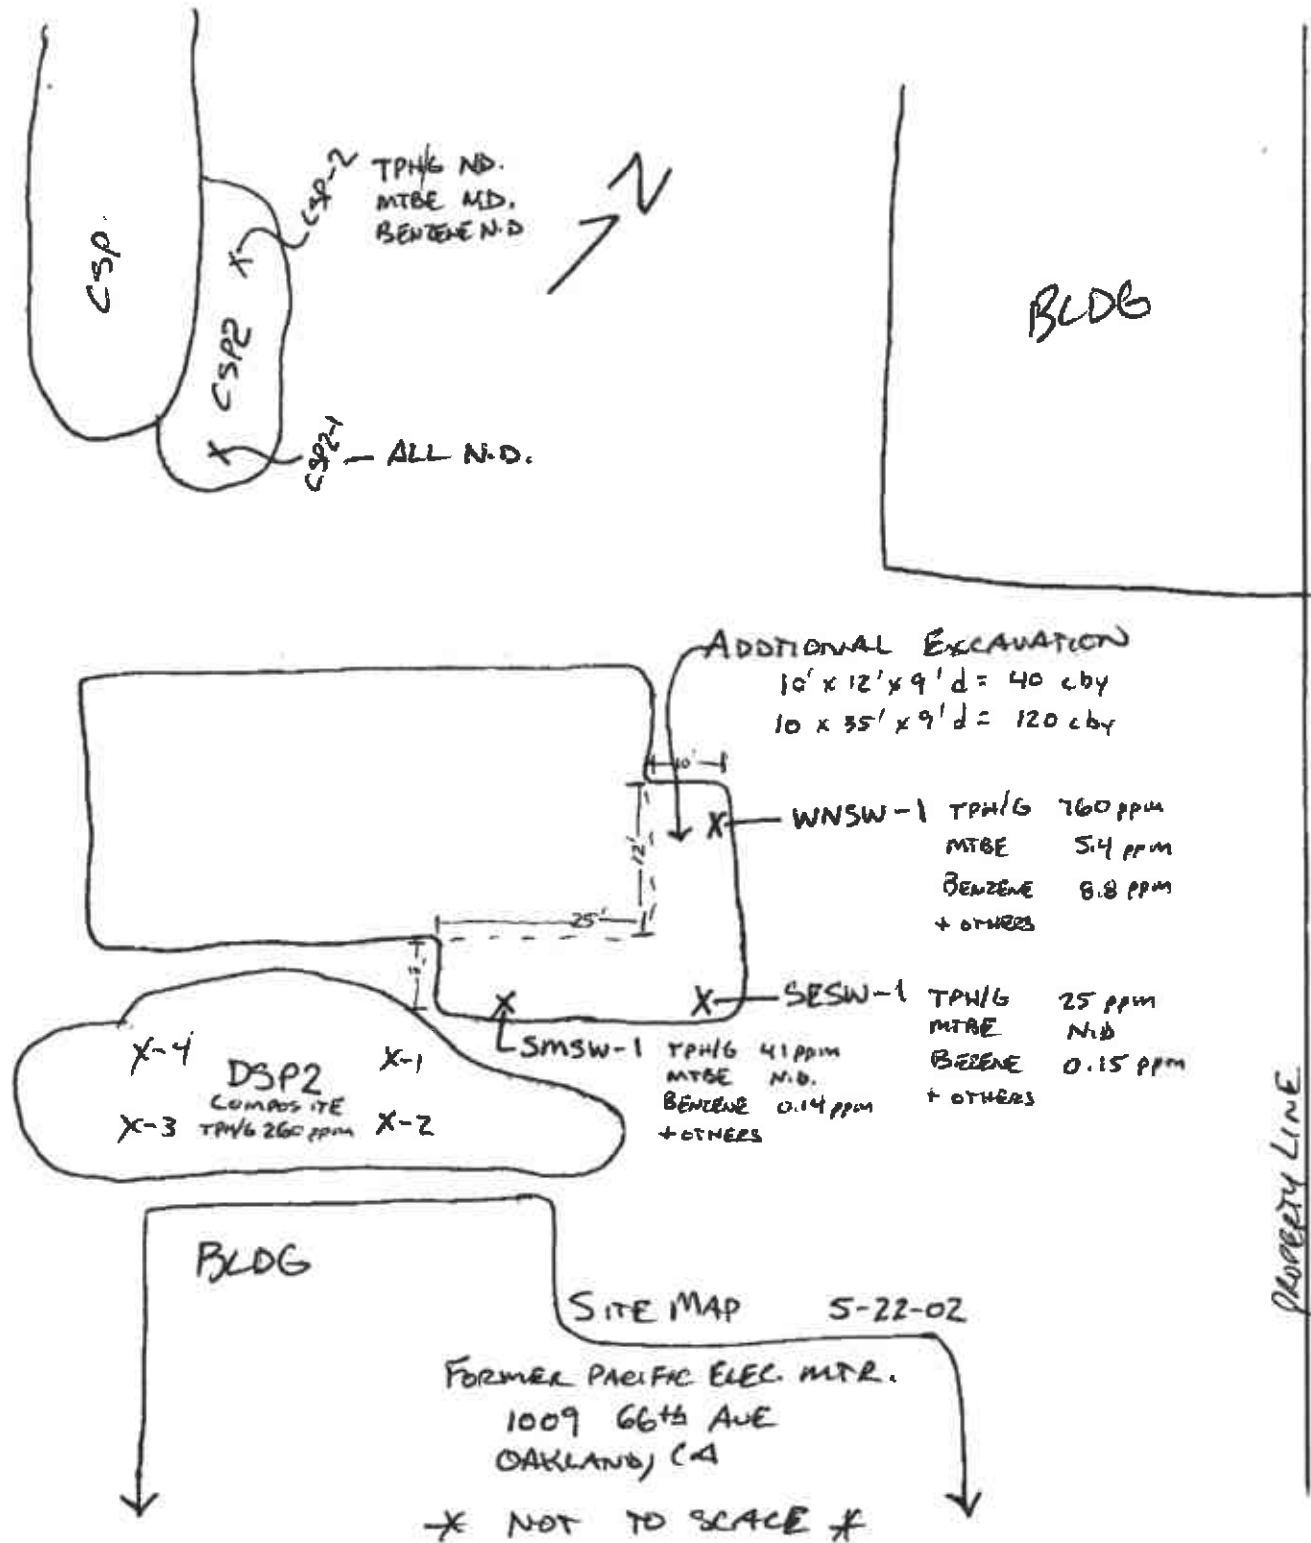 CSP.
CSP2
CSP-2
TPH/G ND.
MTBE ND.
BENZENE N.D
N
CSP2-1 — ALL N.D.
BLDG
ADDTIONAL EXCAVATION
10' x 12' x 9' d = 40 cby
10 x 35' x 9' d = 120 cby
10'
12'
25'
WNSW-1 TPH/G 760 ppm
MTBE 5.4 ppm
BENZENE 8.8 ppm
+ OTHERS
SESW-1 TPH/G 25 ppm
MTBE N.D
BEZENE 0.15 ppm
+ OTHERS
SMSW-1 TPH/G 41 ppm
MTBE N.D.
BENZENE 0.14 ppm
+ OTHERS
X-4
X-1
DSP2
COMPOSITE
X-3 TPH/G 260 ppm X-2
BLDG
PROPERTY LINE
SITE MAP 5-22-02
FORMER PACIFIC ELEC. MTR.
1009 66th AVE
OAKLAND, CA
* NOT TO SCALE *